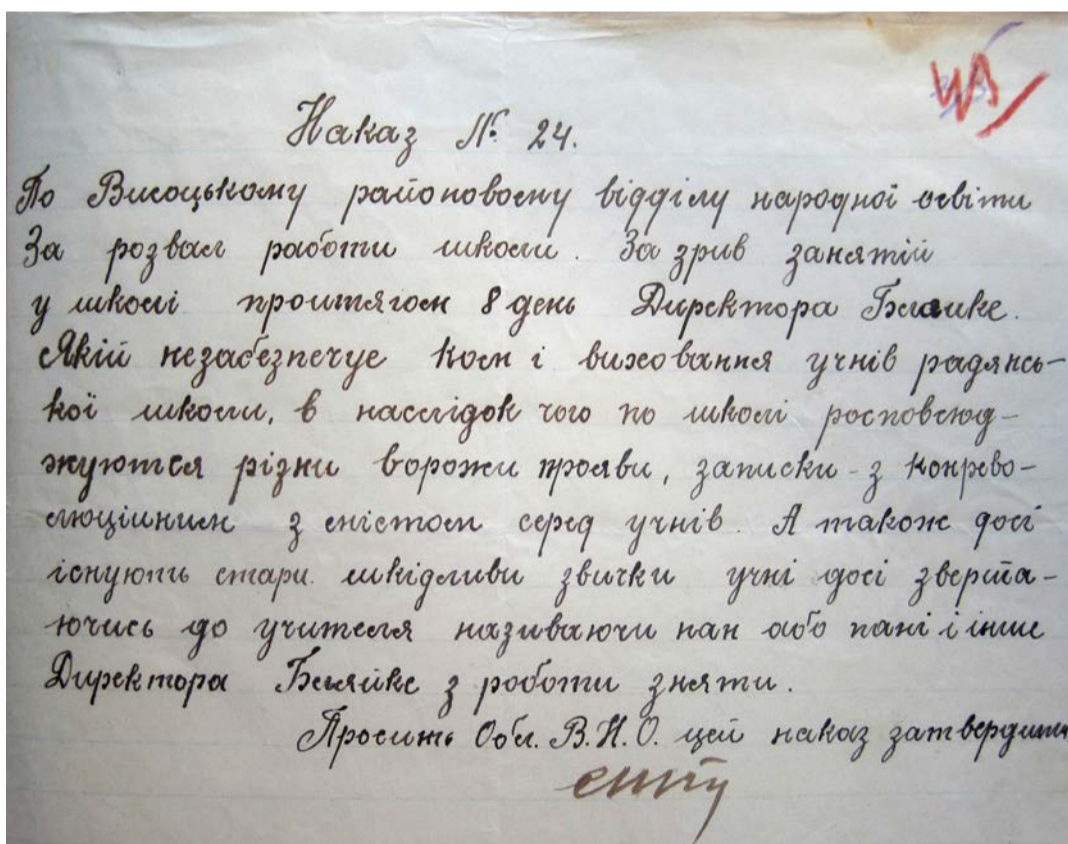 Наказ № 24.
По Висоцькому районовому відділу народної освіти
За розвал работи школи. За зрив занятій
у школі протягом 8 день Директора Беляйке.
Якій незабезпечує ком і виховання учнів радянсь-
кої школи, в наслідок чого по школі росповсюд-
жуются різни ворожи прояви, записки - з конрево-
люційним з змістом серед учнів. А також досі
існують стари шкідливи звички учні досі зверта-
ючись до учителя називаючи пан або пані і інше
Директора Беляйке з роботи зняти.
Просить Обл. В.Н.О. цей наказ затвердити